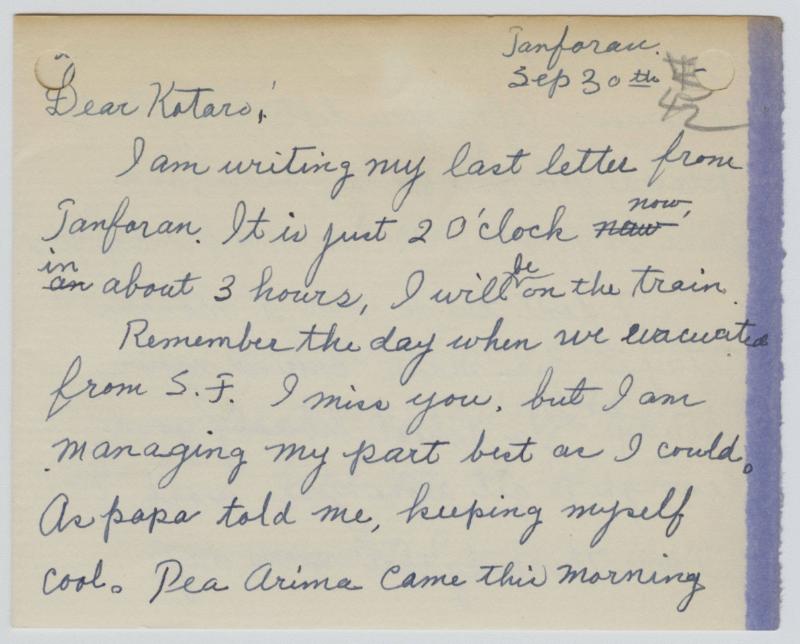 Tanforan.
Sep 30th 42
Dear Kotaro,!
I am writing my last letter from
Tanforan. It is just 2 O'clock now now,
in an about 3 hours, I will be on the train.
Remember the day when we evacuated
from S.F. I miss you, but I am
managing my part best as I could.
As papa told me, keeping myself
cool. Pea Arima came this morning